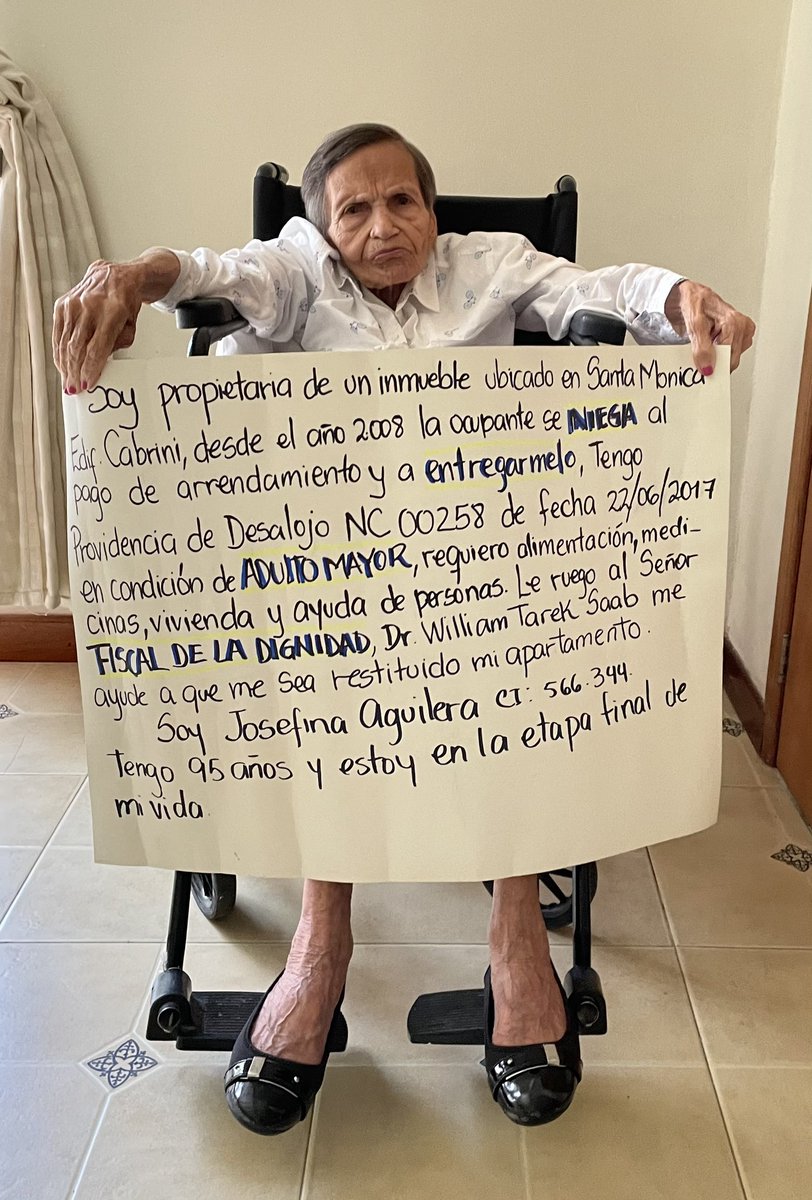 Soy propietaria de un inmueble ubicado en Santa Monica
Edif. Cabrini, desde el año 2008 la ocupante se NIEGA al
pago de arrendamiento y a entregarmelo, Tengo
Providencia de Desalojo NC 00258 de fecha 22/06/2017
en condición de ADULTO MAYOR, requiero alimentación, medi-
cinas, vivienda y ayuda de personas. Le ruego al Señor
FISCAL DE LA DIGNIDAD, Dr. William Tarek Saab me
ayude a que me sea restituido mi apartamento.
Soy Josefina Aguilera CI: 566.344.
Tengo 95 años y estoy en la etapa final de
mi vida.